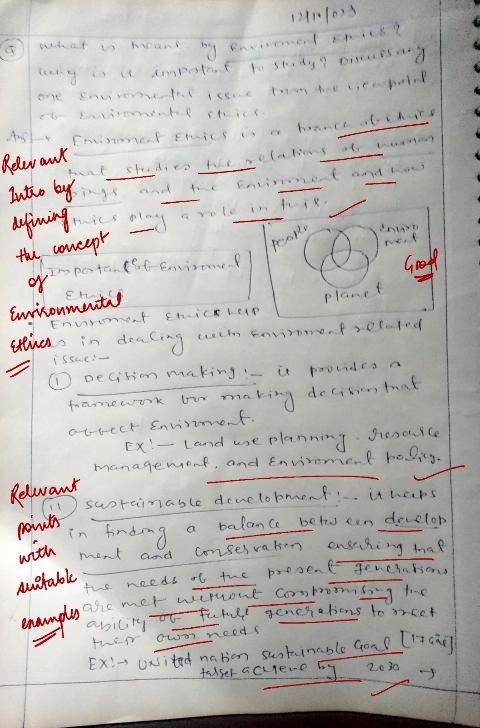 12/10/023
Q What is meant by Enviroment Ethics?
Why is it important to study? Discuss any
one Enviromental issue from the viewpoint
of Enviromental Ethics.
Ans:→ Enviroment Ethics is a branch of Ethics
that studies the relations of human
beings and the Enviroment and how
Ethics play a role in this.
Relevant
Intro by
defining
the concept
of
Environmental
Ethics
people
enviro
ment
planet
Good
Important of Enviroment
Ethics
Enviroment Ethics help
us in dealing with Enviroment related
issue:-
(i) Decision making:- it provides a
framework for making decision that
affect Enviroment.
EX:- Land use planning. resource
management. and Enviroment policy.
Relevant
points
with
suitable
examples
(ii) Sustainable development:- it helps
in finding a balance between develop
ment and conservation ensuring that
the needs of the present generations
are met without compromising the
ability of future generations to meet
their own needs
EX:→ United nation sustainable Goal [17 Goal]
target acheve by 2030 →